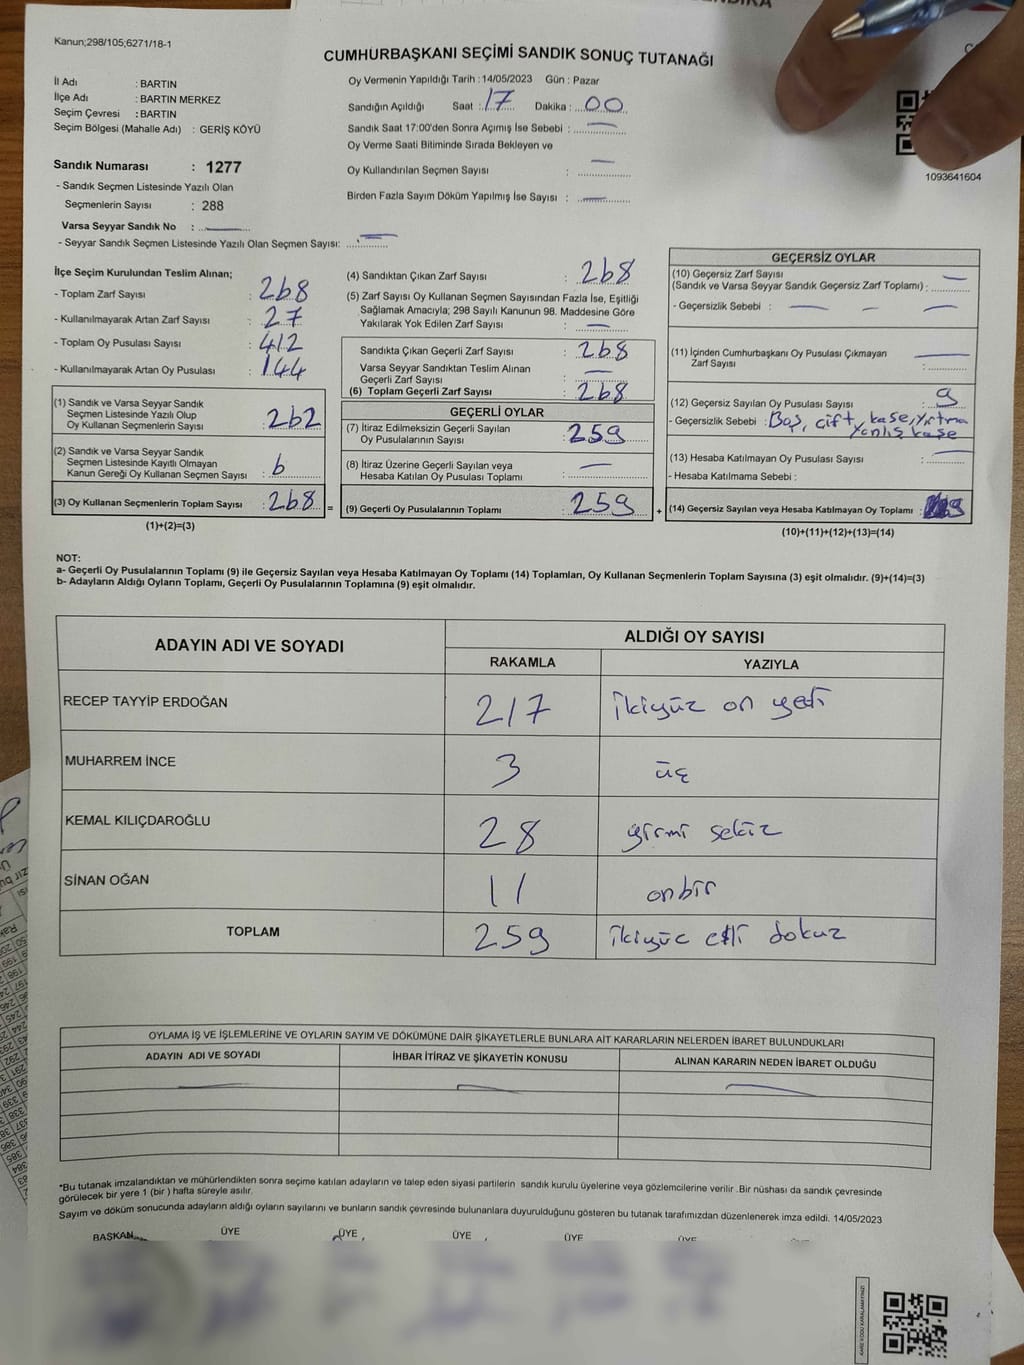 Kanun;298/105;6271/18-1
CUMHURBAŞKANI SEÇİMİ SANDIK SONUÇ TUTANAĞI
İl Adı : BARTIN
İlçe Adı : BARTIN MERKEZ
Seçim Çevresi : BARTIN
Seçim Bölgesi (Mahalle Adı) : GERİŞ KÖYÜ
Oy Vermenin Yapıldığı Tarih : 14/05/2023 Gün : Pazar
Sandığın Açıldığı Saat : 17 Dakika : 00
Sandık Saat 17:00'den Sonra Açımış İse Sebebi : —
Oy Verme Saati Bitiminde Sırada Bekleyen ve
Oy Kullandırılan Seçmen Sayısı : —
Birden Fazla Sayım Döküm Yapılmış İse Sayısı : —
1093641604
Sandık Numarası : 1277
- Sandık Seçmen Listesinde Yazılı Olan
Seçmenlerin Sayısı : 288
Varsa Seyyar Sandık No : —
- Seyyar Sandık Seçmen Listesinde Yazılı Olan Seçmen Sayısı: —
İlçe Seçim Kurulundan Teslim Alınan;
- Toplam Zarf Sayısı : 268
- Kullanılmayarak Artan Zarf Sayısı : 27
- Toplam Oy Pusulası Sayısı : 412
- Kullanılmayarak Artan Oy Pusulası : 144
(1) Sandık ve Varsa Seyyar Sandık
Seçmen Listesinde Yazılı Olup
Oy Kullanan Seçmenlerin Sayısı : 262
(2) Sandık ve Varsa Seyyar Sandık
Seçmen Listesinde Kayıtlı Olmayan
Kanun Gereği Oy Kullanan Seçmen Sayısı : 6
(3) Oy Kullanan Seçmenlerin Toplam Sayısı : 268 =
(1)+(2)=(3)
(4) Sandıktan Çıkan Zarf Sayısı : 268
(5) Zarf Sayısı Oy Kullanan Seçmen Sayısından Fazla İse, Eşitliği
Sağlamak Amacıyla; 298 Sayılı Kanunun 98. Maddesine Göre
Yakılarak Yok Edilen Zarf Sayısı : —
Sandıkta Çıkan Geçerli Zarf Sayısı : 268
Varsa Seyyar Sandıktan Teslim Alınan
Geçerli Zarf Sayısı : —
(6) Toplam Geçerli Zarf Sayısı : 268
GEÇERLİ OYLAR
(7) İtiraz Edilmeksizin Geçerli Sayılan
Oy Pusulalarının Sayısı : 259
(8) İtiraz Üzerine Geçerli Sayılan veya
Hesaba Katılan Oy Pusulası Toplamı : —
(9) Geçerli Oy Pusulalarının Toplamı : 259 +
GEÇERSİZ OYLAR
(10) Geçersiz Zarf Sayısı
(Sandık ve Varsa Seyyar Sandık Geçersiz Zarf Toplamı) : —
- Geçersizlik Sebebi : — — —
(11) İçinden Cumhurbaşkanı Oy Pusulası Çıkmayan
Zarf Sayısı : —
(12) Geçersiz Sayılan Oy Pusulası Sayısı : 9
- Geçersizlik Sebebi : Boş, çift, kaşe, yırtma
yanlış kaşe
(13) Hesaba Katılmayan Oy Pusulası Sayısı : —
- Hesaba Katılmama Sebebi :
(14) Geçersiz Sayılan veya Hesaba Katılmayan Oy Toplamı : 9
(10)+(11)+(12)+(13)=(14)
NOT:
a- Geçerli Oy Pusulalarının Toplamı (9) ile Geçersiz Sayılan veya Hesaba Katılmayan Oy Toplamı (14) Toplamları, Oy Kullanan Seçmenlerin Toplam Sayısına (3) eşit olmalıdır. (9)+(14)=(3)
b- Adayların Aldığı Oyların Toplamı, Geçerli Oy Pusulalarının Toplamına (9) eşit olmalıdır.
ADAYIN ADI VE SOYADI
ALDIĞI OY SAYISI
RAKAMLA YAZIYLA
RECEP TAYYİP ERDOĞAN 217 ikiyüz on yedi
MUHARREM İNCE 3 üç
KEMAL KILIÇDAROĞLU 28 yirmi sekiz
SİNAN OĞAN 11 onbir
TOPLAM 259 ikiyüz elli dokuz
OYLAMA İŞ VE İŞLEMLERİNE VE OYLARIN SAYIM VE DÖKÜMÜNE DAİR ŞİKAYETLERLE BUNLARA AİT KARARLARIN NELERDEN İBARET BULUNDUKLARI
ADAYIN ADI VE SOYADI İHBAR İTİRAZ VE ŞİKAYETİN KONUSU ALINAN KARARIN NEDEN İBARET OLDUĞU
*Bu tutanak imzalandıktan ve mühürlendikten sonra seçime katılan adayların ve talep eden siyasi partilerin sandık kurulu üyelerine veya gözlemcilerine verilir .Bir nüshası da sandık çevresinde
görülecek bir yere 1 (bir ) hafta süreyle asılır.
Sayım ve döküm sonucunda adayların aldığı oyların sayılarını ve bunların sandık çevresinde bulunanlara duyurulduğunu gösteren bu tutanak tarafımızdan düzenlenerek imza edildi. 14/05/2023
BAŞKAN ÜYE ÜYE ÜYE ÜYE ÜYE